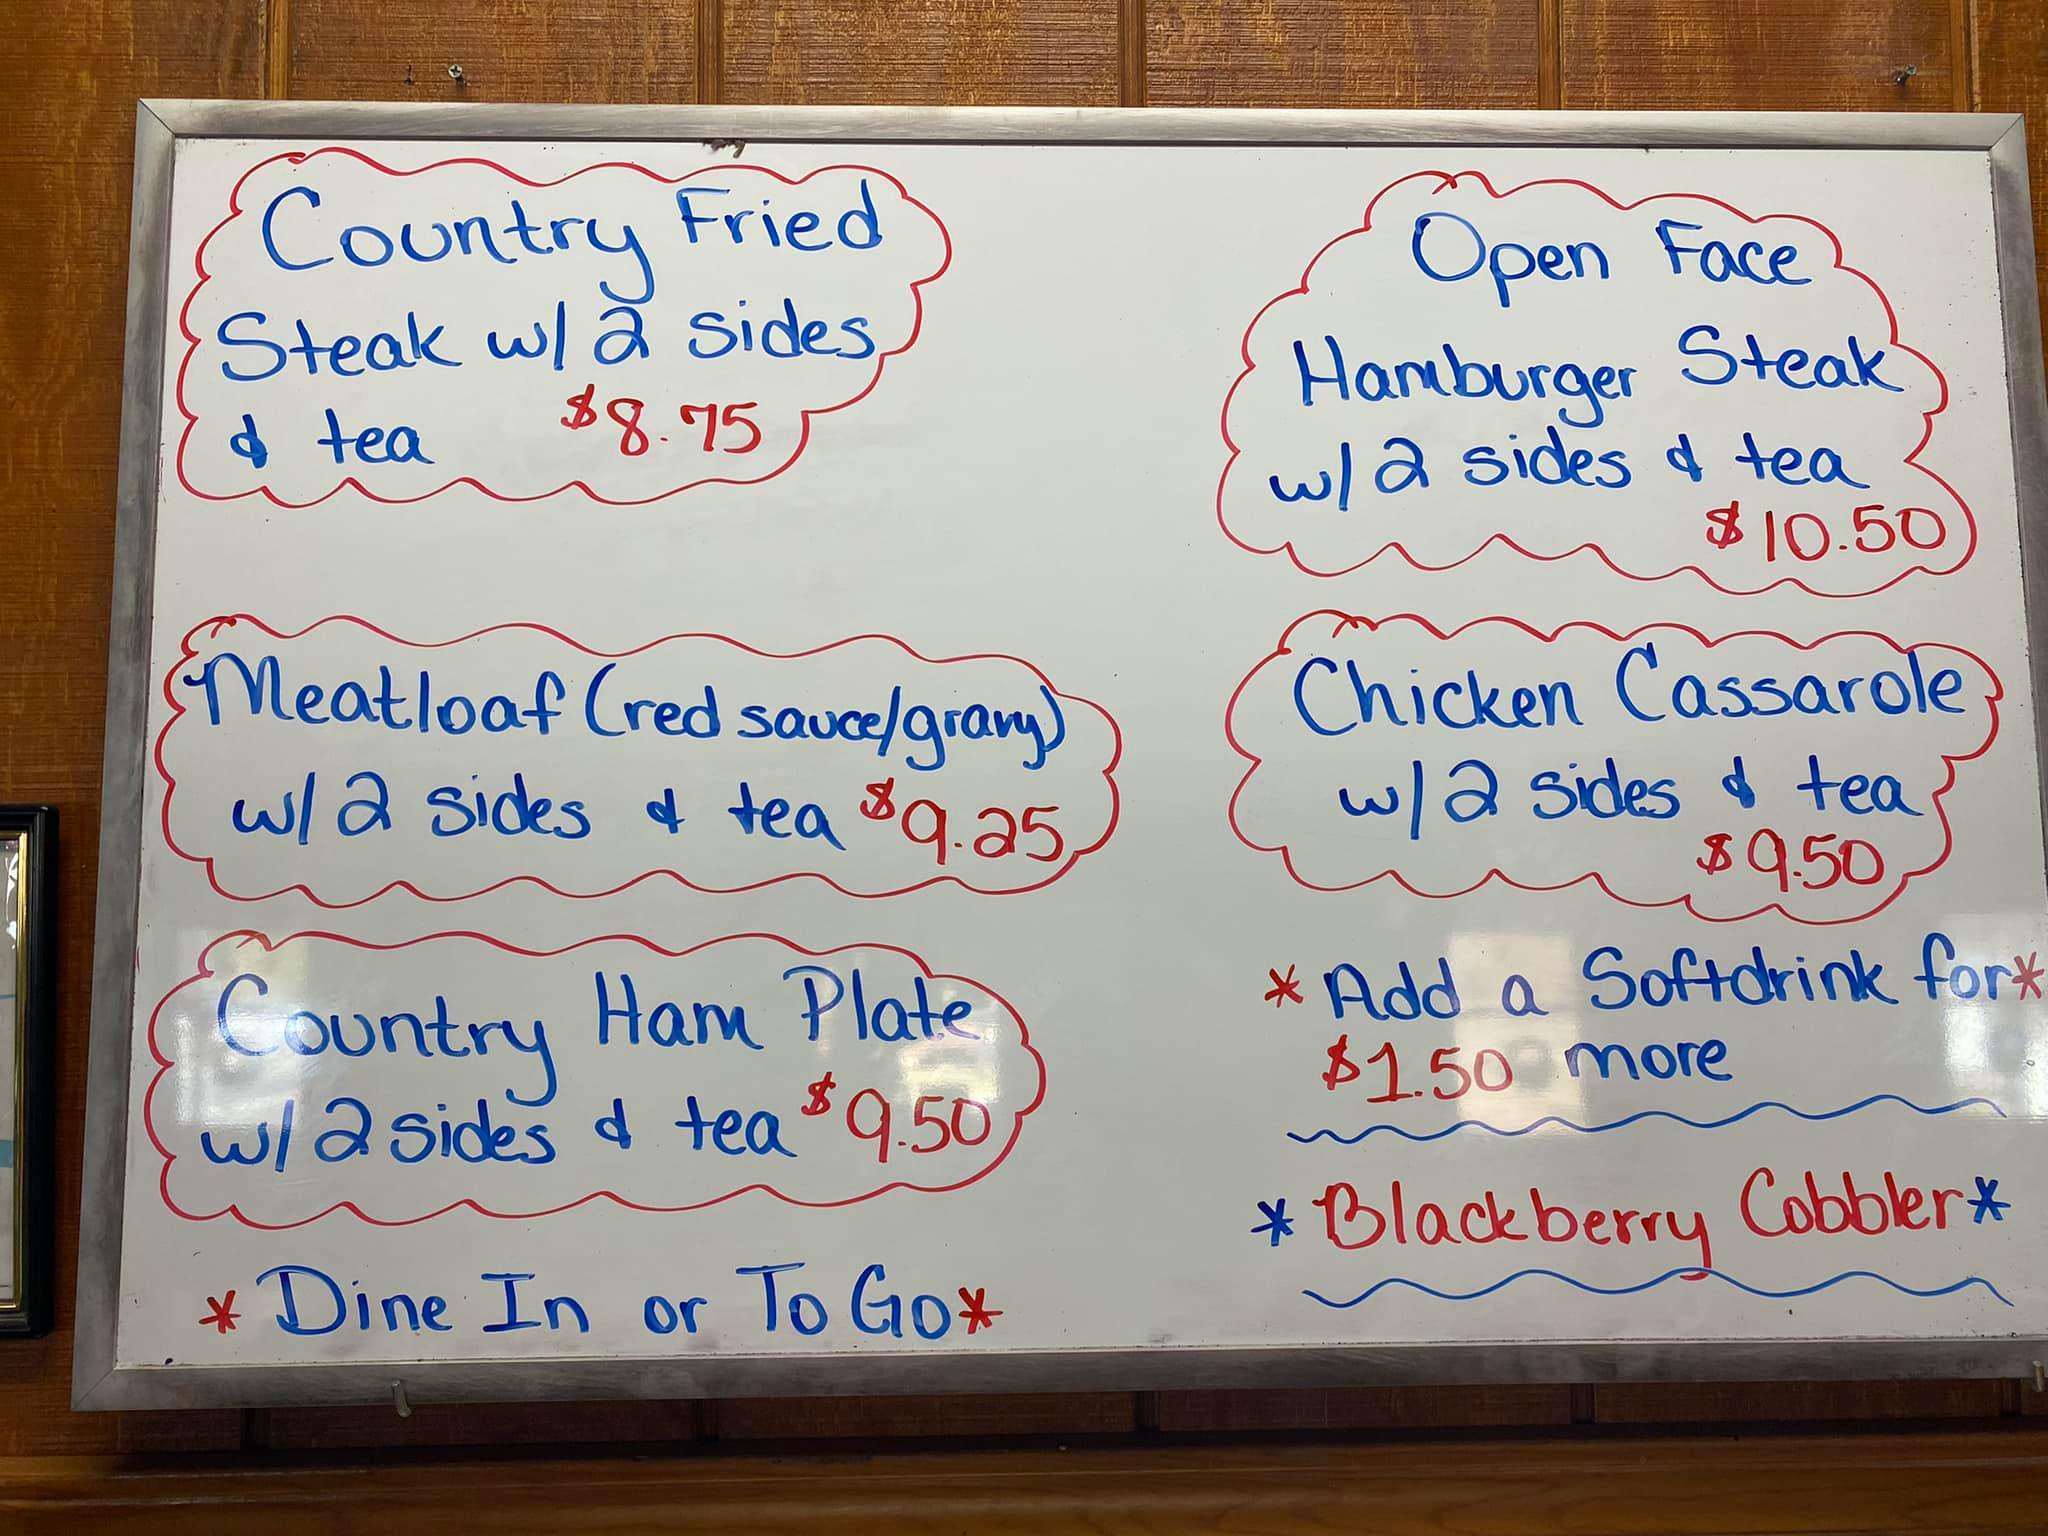 Country Fried
Steak w/ 2 sides
& tea $8.75
Meatloaf (red sauce/gravy)
w/ 2 sides & tea $9.25
Country Ham Plate
w/ 2 sides & tea $9.50
* Dine In or To Go *
Open Face
Hamburger Steak
w/ 2 sides & tea
$10.50
Chicken Cassarole
w/ 2 sides & tea
$9.50
* Add a Softdrink for *
$1.50 more
* Blackberry Cobbler *